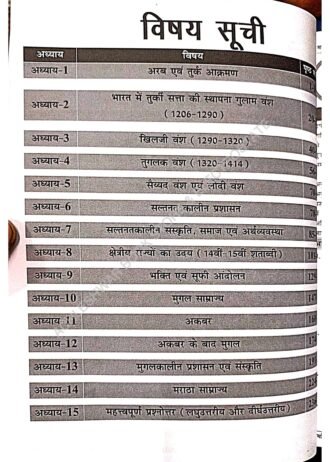 विषय सूची
अध्याय विषय
अध्याय-1 अरब एवं तुर्क आक्रमण
अध्याय-2 भारत में तुर्की सत्ता की स्थापना गुलाम वंश
(1206-1290)
अध्याय-3 खिलजी वंश (1290-1320)
अध्याय-4 तुगलक वंश (1320-1414)
अध्याय-5 सैय्यद वंश एवं लोदी वंश
अध्याय-6 सल्तनत कालीन प्रशासन
अध्याय-7 सल्तनतकालीन संस्कृति, समाज एवं अर्थव्यवस्था
अध्याय-8 क्षेत्रीय राज्यों का उदय (14वीं 15वीं शताब्दी)
अध्याय-9 भक्ति एवं सूफी आंदोलन
अध्याय-10 मुगल साम्राज्य
अध्याय 11 अकबर
अध्याय-12 अकबर के बाद मुगल
अध्याय-13 मुगलकालीन प्रशासन एवं संस्कृति
अध्याय-14 मराठा साम्राज्य
अध्याय-15 महत्त्वपूर्ण प्रश्नोत्तर (लघुउत्तरीय और दीर्घउत्तरीय)